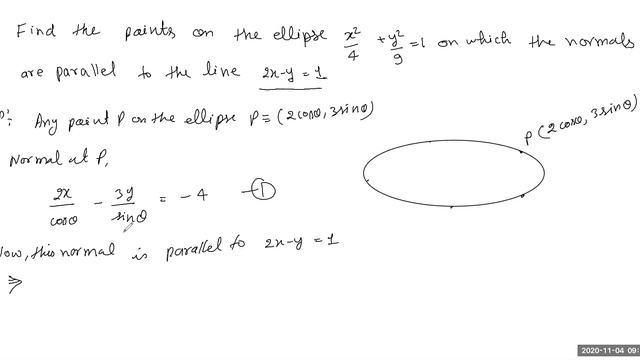 Find the points on the ellipse x²/4 + y²/9 = 1 on which the normals
are parallel to the line 2x-y = 1
Any point P on the ellipse P ≡ (2cosθ, 3sinθ)
P(2cosθ, 3sinθ)
Normal at P,
2x/cosθ - 3y/sinθ = -4 —①
Now, this normal is parallel to 2x-y = 1
⇒
2020-11-04 09: